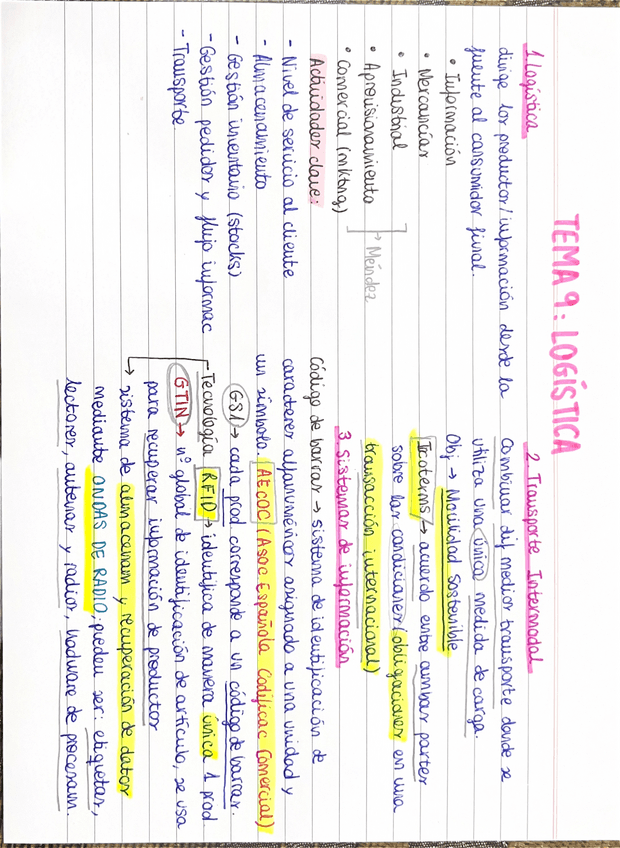 TEMA 9: LOGÍSTICA
1. Logística
dirige los productos/información desde la
fuente al consumidor final.
• Información
• Mercancías
• Industrial
• Aprovisionamiento
• Comercial (mktng)
→ Méndez
Actividades clave:
- Nivel de servicio al cliente
- Almacenamiento
- Gestión inventario (stocks)
- Gestión pedidos y flujo informac
- Transporte.
2. Transporte Intermodal
Combinar dif medios transporte donde se
utiliza una única medida de carga.
Obj → Movilidad sostenible
Incoterms → acuerdo entre ambas partes
sobre las condiciones/obligaciones en una
transacción internacional)
3. Sistemas de información
Código de barras → sistema de identificación de
caracteres alfanuméricos asignado a una unidad y
un símbolo. AECOC (Asoc Española Codificac Comercial)
GS1 → cada prod corresponde a un código de barras.
Tecnología RFID → identifica de manera única 1 prod
GTIN → nº global de identificación de artículo, se usa
para recuperar información de productos
→ sistema de almacenam y recuperación de datos
mediante ONDAS DE RADIO; pueden ser: etiquetas,
lectores, antenas y radios, hadware de procesam.